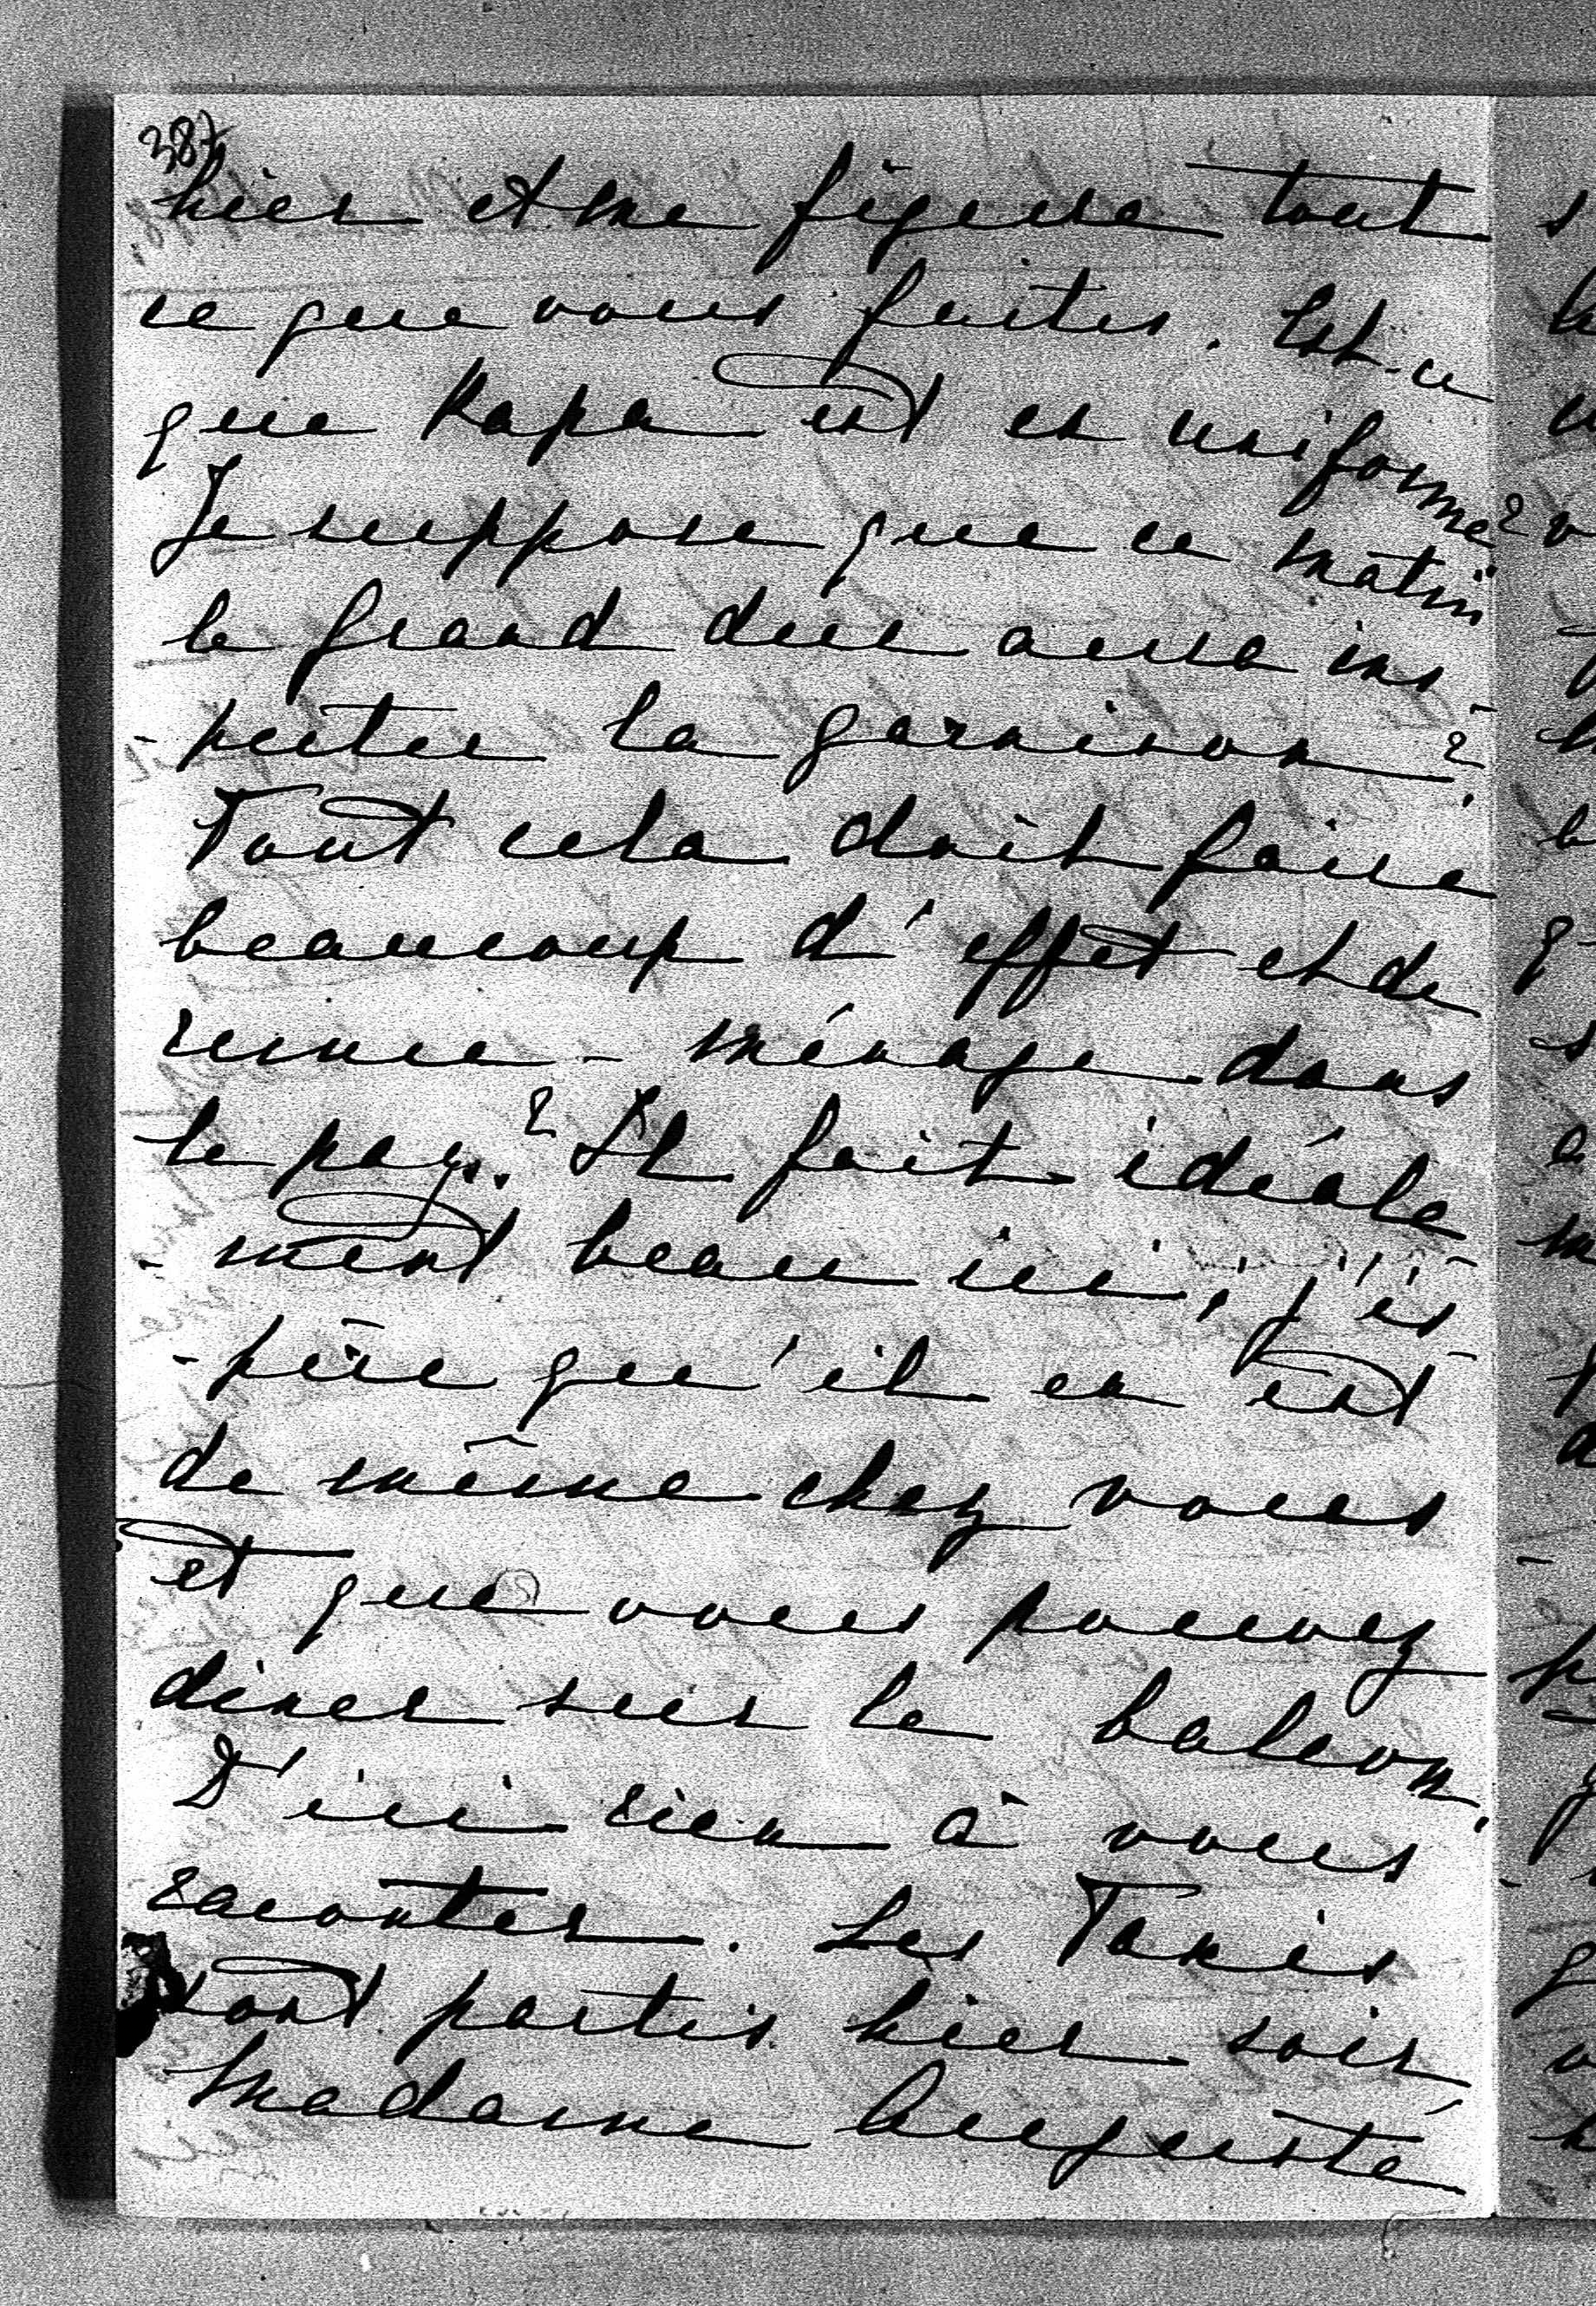 387
hier et me figure tout
ce que vous faites. Est-ce
que Papa est en uniforme?
Je suppose que ce matin
le grand duc aura ins-
-pecter la garnison?
Tout cela doit faire
beaucoup d'effet et de
remue-ménage dans
le pays? Il fait idéale-
-ment beau ici; j'es-
-père qu'il en est
de même chez vous
et que vous pouvez
diner sur le balcon.
D'ici rien à vous
raconter. Les
sont partis hier soir
Madame Auguste